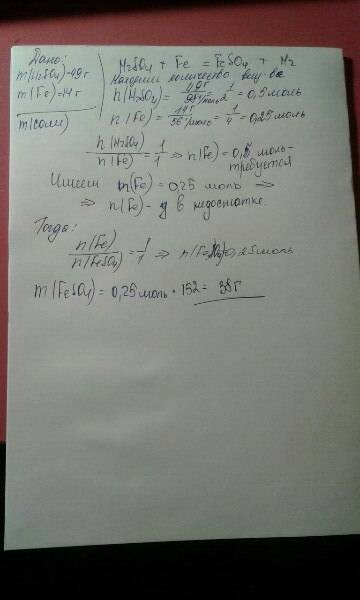 Дано:
m(H₂SO₄)=49г
m(Fe)=14г
m(соли)
H₂SO₄ + Fe = FeSO₄ + H₂
Находим количество вещ-ва
n(H₂SO₄) = 49г / 98г/моль = 1/2 = 0,5 моль
n(Fe) = 14г / 56г/моль = 1/4 = 0,25 моль
n(H₂SO₄) / n(Fe) = 1/1 ⇒ n(Fe) = 0,5 моль-
требуется
Имеем n(Fe) = 0,25 моль ⇒
⇒ n(Fe) - в недостатке.
Тогда:
n(Fe) / n(FeSO₄) = 1/1 ⇒ 0,25 моль
m(FeSO₄) = 0,25 моль · 152 = 38г